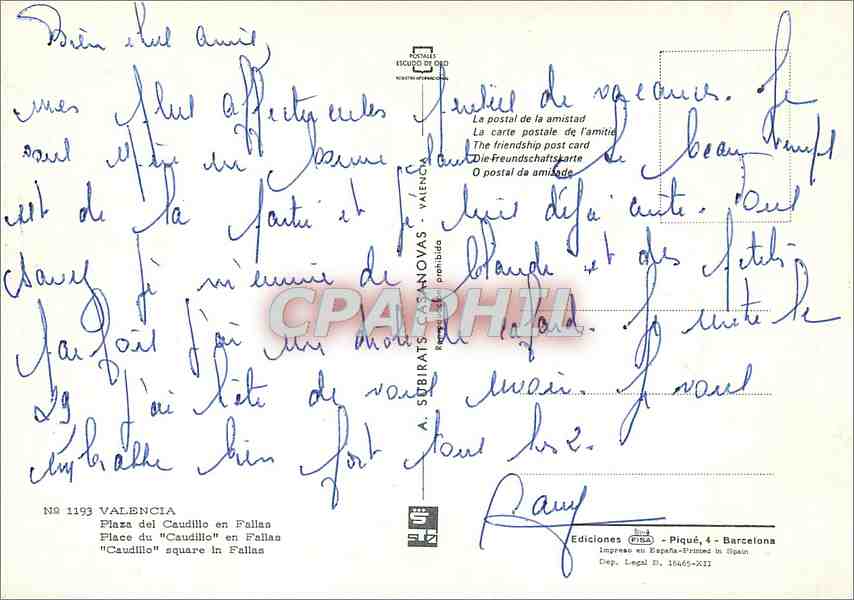 Bien chers amis,
POSTALES
ESCUDO DE ORO
REGISTRO INTERNACIONAL
mes plus affectueuses pensées de vacances. Je
La postal de la amistad
La carte postale de l'amitié
The friendship post card
Die Freundschaftskarte
O postal da amizade
vous en bonne santé Le beau temps
est de la partie et je suis déjà cuite. Vous
savez je m'ennuie de Claude et des petits.
Parfois j'ai un drôle de cafard. Je rentre le
29 j'ai hâte de vous revoir. Je vous
embrasse bien fort tous les 2.
A. SUBIRATS CASANOVAS - VALENCIA
Reproducción prohibida
CPAPHIL
Nº 1193 VALENCIA
Plaza del Caudillo en Fallas
Place du "Caudillo" en Fallas
"Caudillo" square in Fallas
Ediciones FISA - Piqué, 4 - Barcelona
Impreso en España-Printed in Spain
Dep. Legal B. 16465-XII